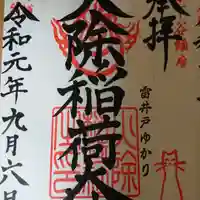 奉拝
雷井戸ゆかり
火除稲荷大
令和元年九月六日